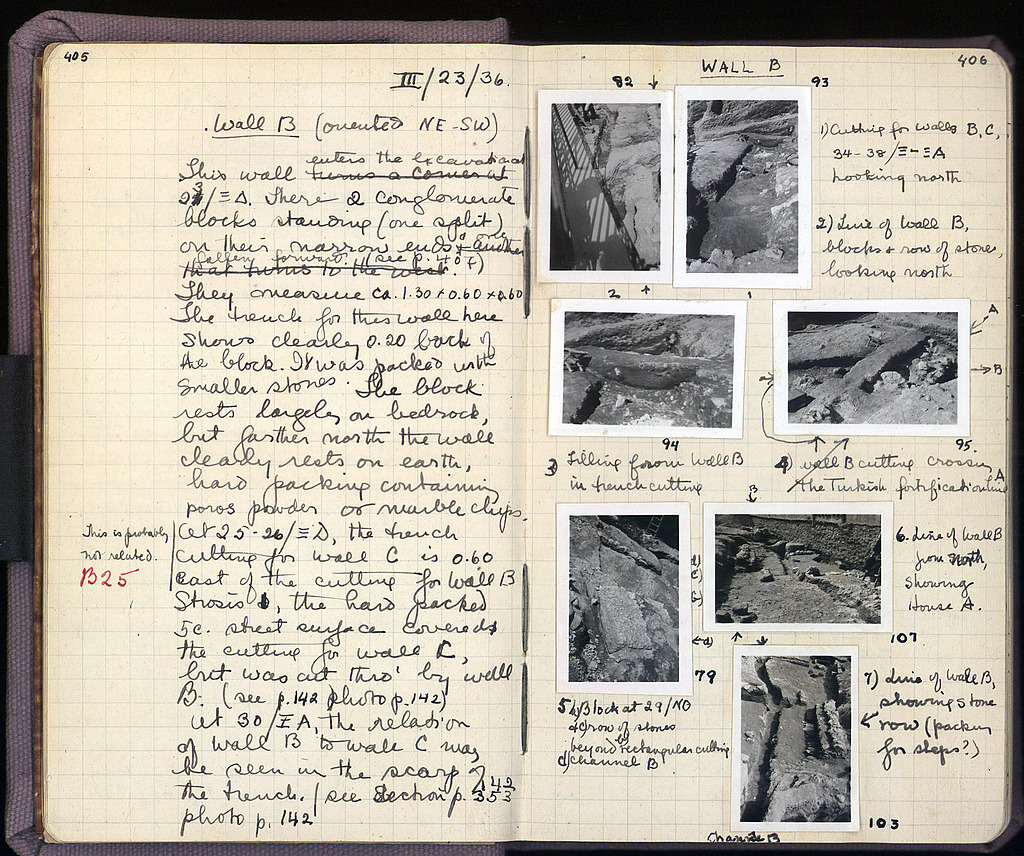 405
III/23/36.
Wall B (oriented NE-SW)
enters the excavation at
This wall turns a corner at
/ΞΔ. There 2 conglomerate
blocks standing (one split)
on their narrow ends & another
fallen forward. (see p. 404)
that turns to the west.
They measure ca. 1.30 x 0.60 x 0.60
The trench for this wall here
shows clearly 0.20 back of
the block. It was packed with
smaller stones. The block
rests largely on bedrock,
but farther north the wall
clearly rests on earth,
hard packing containing
poros powder or marble chips.
This is probably
not related.
B25
At 25-26/ΞΔ, the trench
cutting for wall C is 0.60
east of the cutting for wall B
Strosis, the hard packed
5c. street surface covered
the cutting for wall C,
but was cut thro' by wall
B. (see p. 142 photo p. 142)
At 30/ΞA, the relation
of wall B to wall C may
be seen in the scarp of
the trench. (see Section p. 353
142
photo p. 142
406
WALL B
82
93
1) Cutting for walls B, C,
34-38/Ξ-ΞA
Looking north
2) Line of Wall B,
blocks & row of stones,
looking north
2
1
A
B
94
95
3) Filling from Wall B
in trench cutting
4) wall B cutting crossing
the Turkish fortification line
A
B
6. Line of Wall B
from north,
showing
House A.
107
d
79
5) Block at 29/
row of stones
beyond rectangular cutting
d) channel B
7) Line of Wall B,
showing stone
row (packing
for steps?)
103
Channel B